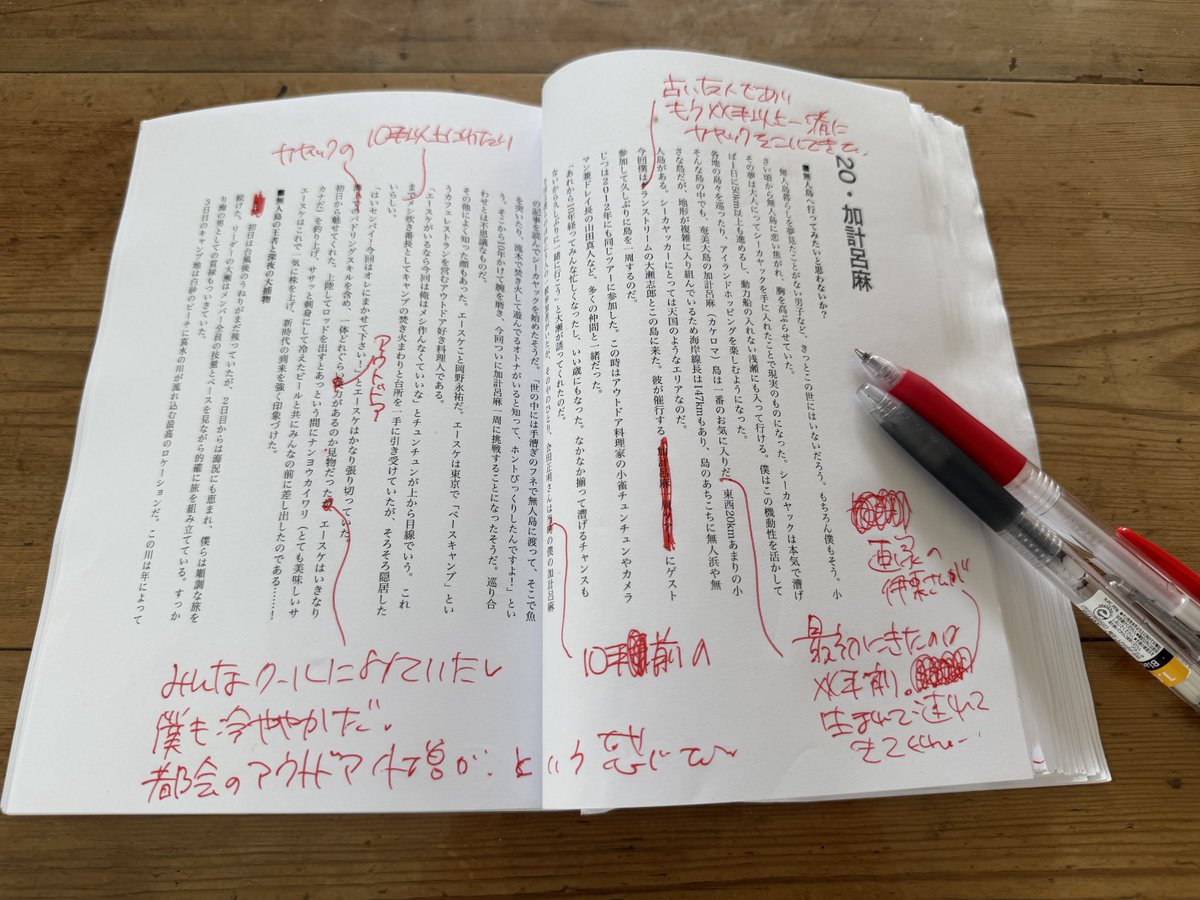 20・加計呂麻
■無人島へ行ってみたいと思わないか?
無人島暮らしを夢見たことがない男子など、きっとこの世にはいないだろう。もちろん僕もそう。小
さい頃から無人島に恋い焦がれ、胸を高ぶらせていた。
その夢は大人になってシーカヤックを手に入れたことで現実のものになった。シーカヤックは本気で漕げ
ば1日に50km以上も進めるし、動力船の入れない浅瀬にも入って行ける。僕はこの機動性を活かして
各地の島々を巡ったり、アイランドホッピングを楽しむようになった。
そんな島の中でも、奄美大島の加計呂麻(カケロマ)島は一番のお気に入りだ。東西20kmあまりの小
さな島だが、地形が複雑に入り組んでいるため海岸線長は147kmもあり、島のあちこちに無人浜や無
人島がある。シーカヤッカーにとっては天国のようなエリアなのだ。
今回僕は ランストリームの大瀬志郎とこの島に来た。彼が催行する にゲスト
参加して久しぶりに島を一周するのだ。
じつは2012年にも同じツアーに参加した。この時はアウトドア料理家の小雀チュンチュンやカメラ
マン兼ドレイ長の山田真人など、多くの仲間と一緒だった。
「あれから10年経ってみんな忙しくなったし、いい歳にもなった。なかなか揃って漕げるチャンスも
ないから久しぶりに一緒に行こう」と大瀬が誘ってくれたのだ。
の僕の加計呂麻
の記事を読んでシーカヤックを始めたそうだ。「世の中には手漕ぎのフネで無人島に渡って、そこで魚
を突いたり、流木で焚き火して遊んでるオトナがいると知って、ホントびっくりしたんですよ!」とい
う。そこから10年かけて腕を磨き、今回ついに加計呂麻一周に挑戦することになったそうだ。巡り合
わせとは不思議なものだ。
その他によく知った顔もあった。エースケこと岡野永祐だ。エースケは東京で「ベースキャンプ」とい
うカフェレストランを営むアウトドア好き料理人である。
「エースケがいるなら今回は俺はメシ作んなくていいな」とチュンチュンが上から目線でいう。これ
までメシ炊き番長としてキャンプの焚き火まわりと台所を一手に引き受けていたが、そろそろ隠居した
いらしい。
「はいセンパイ!今回はオレにまかせて下さい!」とエースケはかなり張り切っていた。
のパドリングスキルを含め、一体どれぐらい 力があるのか見物だった 、エースケはいきなり
初日から魅せてくれた。上陸してロッドを出すとあっという間にナンヨウカイワリ(とても美味しいサ
カナだ)を釣り上げ、ササッと刺身にして冷えたビールと共にみんなの前に差し出したのである……!
エースケはこれで一気に株を上げ、新時代の到来を強く印象づけた。
■無人島の王者と深夜の大捕物
初日は台風後のうねりがまだ残っていたが、2日目からは海況にも恵まれ、僕らは順調な旅を
続けた。リーダーの大瀬はメンバー全員の技量とペースを見ながら的確に旅を組み立てている。すっか
り海の男としての貫禄もついてきた。
3日目のキャンプ地は白砂のビーチに真水の川が流れ込む最高のロケーションだ。この川は年によって
古い友人であり
もう××年以上一緒に
カヤックをこいできて、
画家の
伊東さんが
最初にきたのは
××年前。
10年 前の
カヤックの
10年以上にわたり
アウトドア
みんなクールに
僕も冷ややかだ。
都会のアウトドア